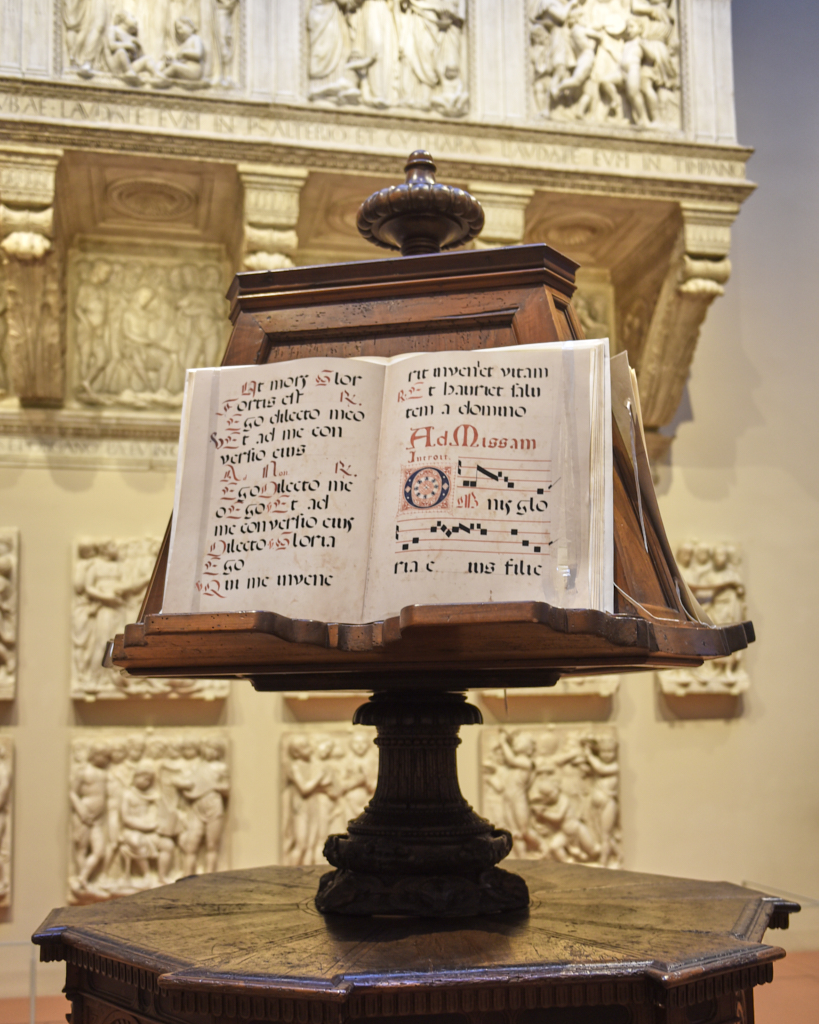 VBAE · LAVDATE EVM IN PSALTERIO ET CYTHARA LAVDATE EVM IN TIMPANO
Ut mors Glor
Fortis est R.
Ego dilecto meo
Et ad me con
versio eius
Ad Non. R.
Ego Dilecto me
o Ego Et ad
me conversio eius
Dilecto Gloria
Ego
Qui me invene
rit inveniet vitam
R. Et hauriet salu
tem a domino
Ad Missam
Introit.
O Mnis glo
ria e ius filie